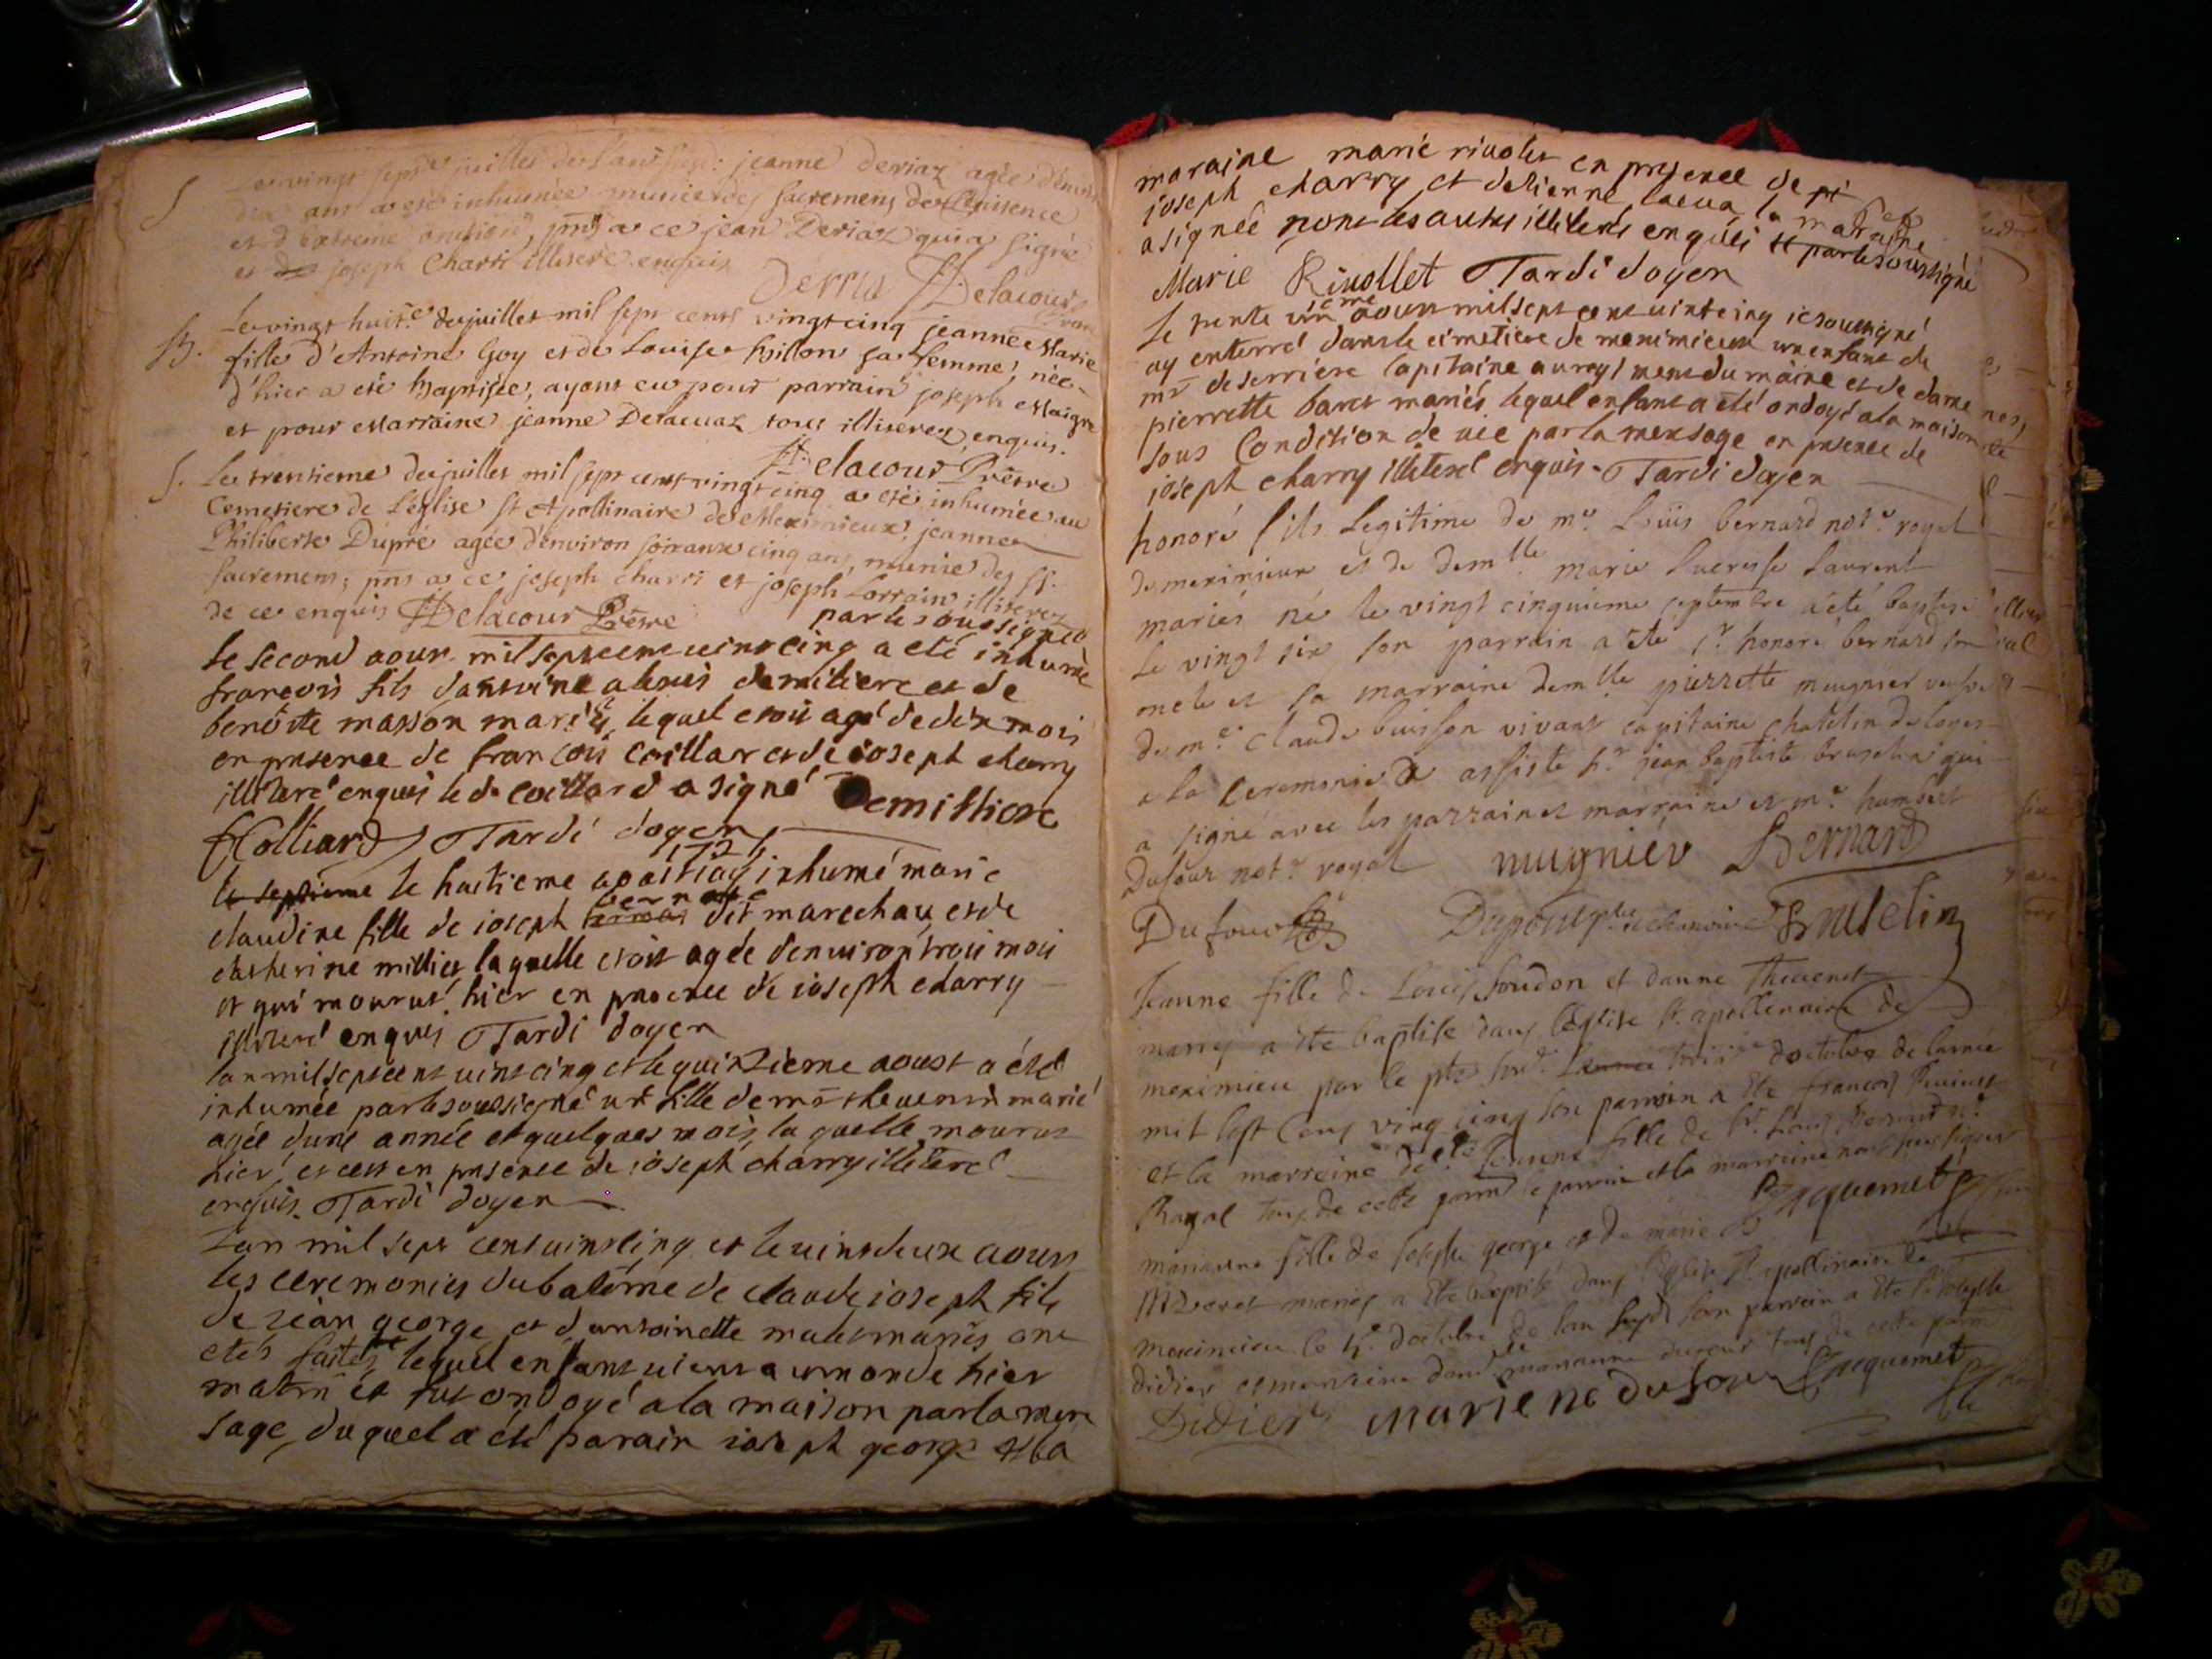 Le vingt sept.e juillet de l'an susd: jeanne deriaz agée d'environ
dix ans a esté inhumée munie des sacremens de Penitence
et d'extreme onction, pnts a ce jean Deriaz qui a signé
et joseph Charri illiteré enquis
Derria Delacour
B. Le vingt huit.e de juillet mil sept cents vingt cinq jeanne Marie
fille d'Antoine Goy et de Louise hillon sa femme, née
d'hier a eté baptisée, ayant eu pour parrain joseph Maigre
et pour Marraine jeanne Delacuaz tous illiterez enquis.
Delacour Prêtre
S. Le trentieme de juillet mil sept cent vingt cinq a eté inhumée au
Cemetiere de L'eglise St Apollinaire de Meximieux, jeanne
Philiberte Dupré agée d'environ soixante cinq ans, munie des SS.
Sacremens; pnts a ce joseph charri et joseph Lorrain illiterez
de ce enquis Delacour Prêtre
par le soussigné
le second aoust mil sept cent vint cinq a eté inhumé
francois fils dantoine alexis demiliere et de
benoite masson mariés lequel etoit agé de dix mois
en presence de francois coillar et de ioseph charry
illiteré enquis le d. coillard a signé Demilliere
Colliard Tardi doyen
1725
le septieme le huitieme aoust iay inhumé marie
claudine fille de ioseph bernard dit marechau, et de
catherine millies laquelle etoit agée denviron trois mois
et qui mourut hier en presence de ioseph charry
illiteré enquis Tardi doyen
lan mil sept cent vint cinq et le quinzieme aoust a été
inhumée par le soussigné une fille de thevenin marié
agée dune année et quelques mois, la quelle mourut
hier et cest en presence de ioseph charry illiteré
enquis. Tardi doyen
Lan mil sept cent vint cinq et le vint deux aoust
les ceremonies du batême de claude ioseph fils
de jean george et d'antoinette mariés ont
etés faites, lequel enfant vient au monde hier
matin et fut ondoyé a la maison par la mere
sage, duquel a été parain ioseph george et la
maraine marie rivolet en presence de
joseph charry et detienne lacua, la maraine
a signée non les autres illiterés enquis et par le soussigné
Marie Rivollet Tardi doyen
le trente un eme aoust mil sept cent vint cinq ie soussigné
ay enterré dans le cimetiere de meximieux un enfant de
mr deserriere capitaine au regiment du maine et de dame
pierrette baret mariés, lequel enfant a été ondoyé a la maison
sous condition de vie par la mere sage en presence de
ioseph charry illiteré enquis. Tardi doyen
honoré fils Legitime de me. Loüis bernard notre. royal
de meximieux et de demlle. marie lucresse Laurent
mariés né le vingt cinquieme septembre a été baptisé
le vingt six son parrain a été sr. honoré bernard son
oncle et sa marraine demlle pierrette mugnier veufve
de me. claude buisson vivant capitaine chatelin de loyes
a la ceremonie a assisté sr. jean baptiste bruselin qui
a signé avec les parrain et marraine et me. humbert
Dufour notre. royal mugnier Bernard
Dufour Dupont chanoine Bruselin
Jeanne fille de Louis soudon et danne Thevenet
mariés a été baptisé dans leglise St. apollinaire de
meximieu par le ptre sous.é trois.e doctobre de lannee
mil sept cens ving cinq son parrain a été francois
et la marreine delle. fille de Sr. Louis Bernard nre.
Royal tous de cette parroisse le parrain et la marreine
Jacquemet
marianne fille de Joseph george et de marie
mariés a été baptisé dans leglise St. apollinaire de
meximieu le 4e. doctobre de lan susd. son parrain a été Sr. Joseph
didier et marreine dlle marianne dufour tous de cette parroisse
Didier marie ne dufour Jacquemet